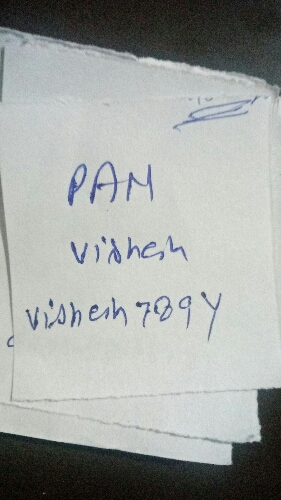 PAN
Vishesh
Vishesh789Y